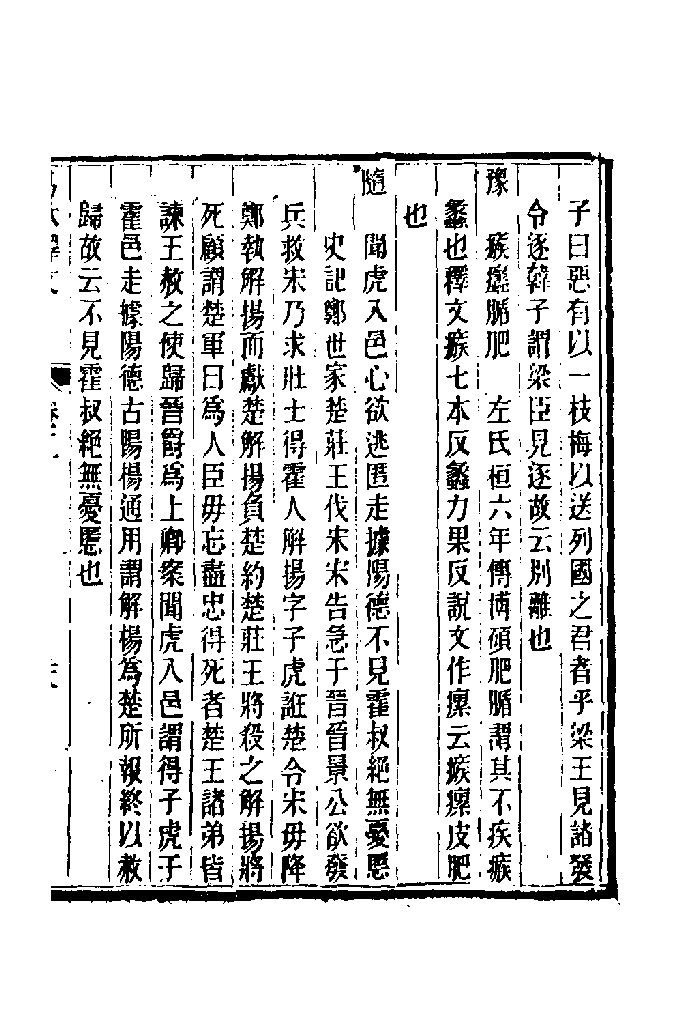 子曰惡有以一枝梅以送列國之君者乎梁王見諸發
令逐韓子謂梁臣見逐故云別離也
豫　瘯瘯腯肥　左氏桓六年傳博碩肥腯謂其不疾瘯
蠡也釋文瘯七木反蠡力果反說文作瘰云瘯瘰皮肥
也
隨　聞虎入邑心欲逃匿走據陽德不見霍叔絕無憂慝
史記鄭世家楚莊王伐宋宋告急于晉晉景公欲發
兵救宋乃求壯士得霍人解揚字子虎誑楚令宋毋降
鄭執解揚而獻楚解揚負楚約楚莊王將殺之解揚將
死顧謂楚軍曰爲人臣毋忘盡忠得死者楚王諸弟皆
諫王赦之使歸晉爵爲上卿案聞虎入邑謂得子虎于
霍邑走據陽德古陽楊通用謂解楊爲楚所報終以赦
歸故云不見霍叔絕無憂慝也